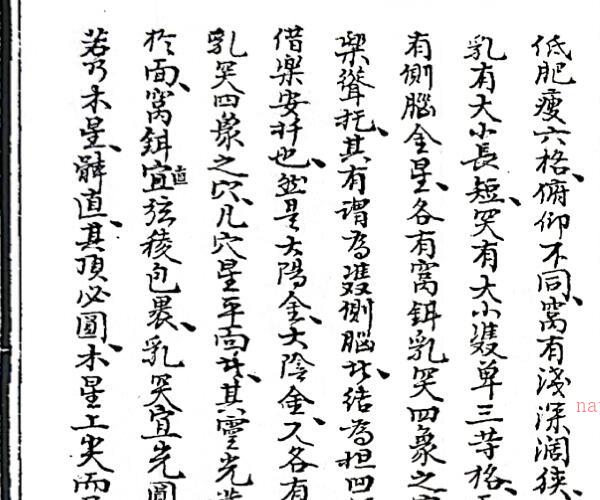 低肥瘦六格、俯仰不同、窩有淺深濶狹、
乳有大小長短、突有大小雙单三等格、
有側腦金星、各有窩鉗乳突四象之
樂聳托、其有谓為雙側腦、此结為担凹
借樂安扦也、然是太陽金、太陰金、又各有
乳突四象之穴、凡穴星平面者、其靈光
於面、窩鉗宜直弦稜包裹、乳突宜光圓
若乃木星、體直、其頂必圓、木星上尖而
na